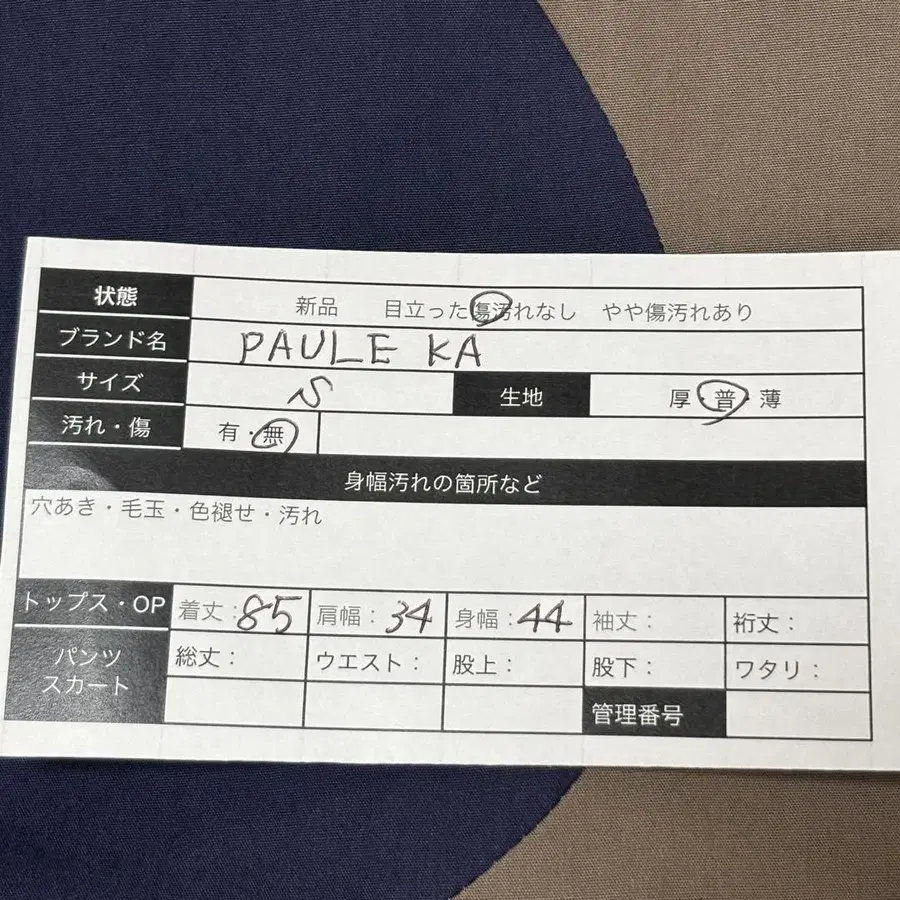 状態 新品 目立った傷汚れなし やや傷汚れあり
ブランド名 PAULE KA
サイズ S 生地 厚・普・薄
汚れ・傷 有・無
身幅汚れの箇所など
穴あき・毛玉・色褪せ・汚れ
トップス・OP 着丈:85 肩幅:34 身幅:44 袖丈: 裄丈:
パンツ 総丈: ウエスト: 股上: 股下: ワタリ:
スカート
管理番号